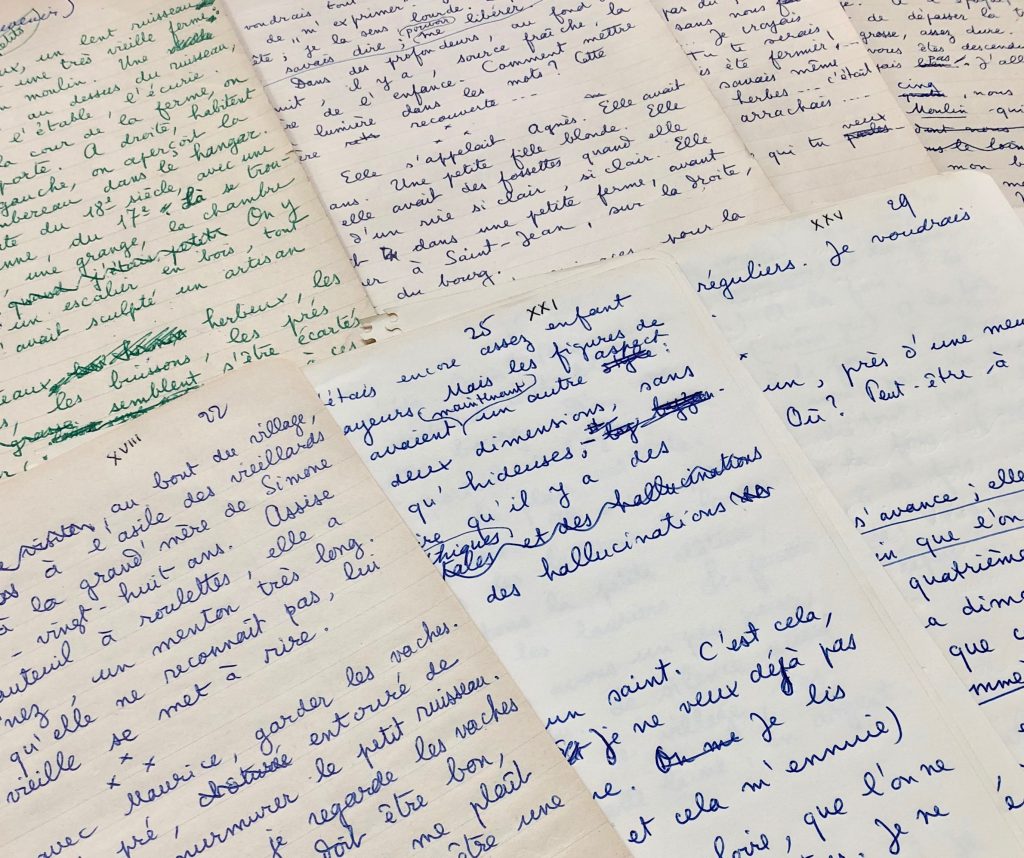 ruisseau
eux, un lent
une très vieille ferme
moulin. Une
au dessus du ruisseau,
l'étable, l'écurie.
la cour de la ferme, on
porte. A droite, habitent
gauche, on aperçoit la
dans le hangar.
du 18e siècle, avec une
du 17e là se trou-
une grange, la chambre
quand j'étais petit On y
un escalier en bois, tout
avait sculpté un artisan
herbeux, les
buissons, les prés
les semblent s'être écartés
à ces
voudrais tout
de m'exprimer lourde.
je la sens pouvoir libérer
savais dire, me
Dans des profondeurs, au fond
il y a, source fraîche, la
de l'enfance. Comment mettre
lumière dans les mots? Cette
recouverte
Elle s'appelait Agnès. Elle avait
ans. Une petite fille blonde. Elle
elle avait des fossettes quand elle
d'un rire si clair, si clair. Elle
dans une petite ferme, avant
à Saint-Jean, sur la droite,
du bourg.
pour la
sans nous
Je croyais
Tu te serais
été fermier,
savais même
herbes... c'était
arrachais
qui tu veux
de dépasser la
grosse, assez dure.
vous êtes descendu
pas J'all
cinq
, nous
Moulin - qui
dont nous
mon b
XVIII 22
visiton, au bout du village,
à l'asile des vieillards
la grand'mère de Simone
à - vingt-huit ans. Assise
fauteuil à roulettes, elle a
nez, un menton très long.
qu'elle ne reconnaît pas, lui
vieille se met à rire.
x x x
avec Maurice, garder les vaches.
pré, clôturé entouré de
murmurer le petit ruisseau.
je regarde les vaches
doit être bon,
me plaît
être une
25 XXI
étais encore assez enfant
ayeurs. Mais les figures de
avaient maintenant un autre style aspect:
deux dimensions, sans
qu'hideuses,
qu'il y a des
et des hallucinations
des hallucinations
un saint. C'est cela,
Et je ne veux déjà pas
ne. On me Je lis
et cela m'ennuie)
loire, que l'on ne
. Je ne
XXV 29
réguliers. Je voudrais
un, près d'une
Où? Peut-être à
s'avance; elle
que l'on
quatrième
a dime
que c